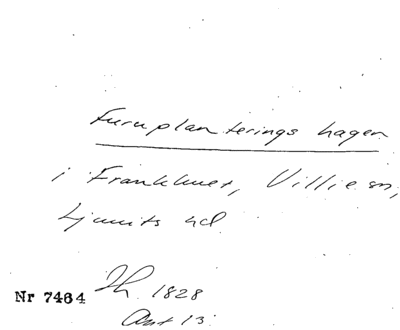 Furuplanterings hagen
i Frankhuet, Villie sn,
Ljunits hd
Nr 7464 Th. 1828
Ant 13.